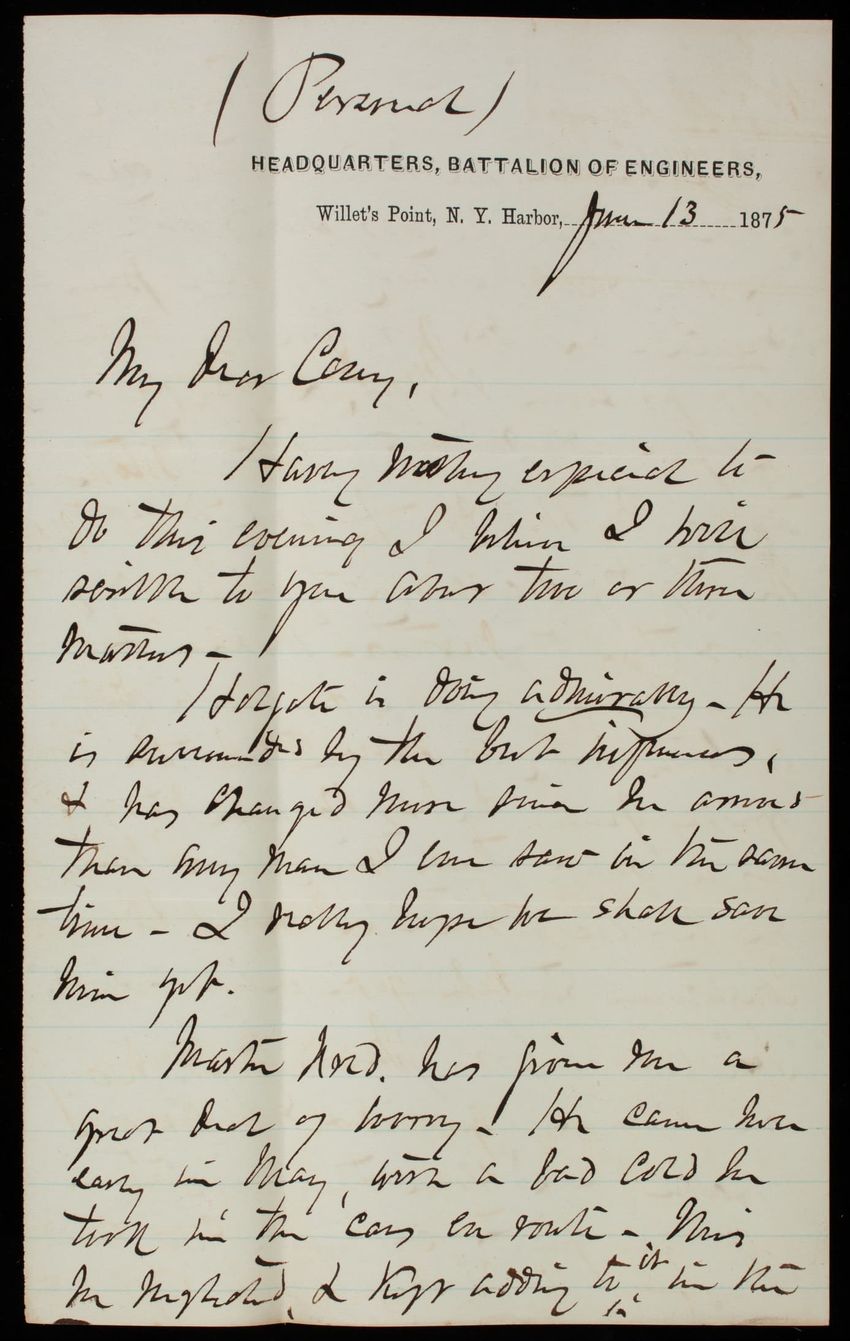 (Personal)
HEADQUARTERS, BATTALION OF ENGINEERS,
Willet's Point, N. Y. Harbor, June 13 1875
My dear Casey,
Having nothing especial to
do this evening I believe I will
scribble to you about two or three
matters -
Holgate is doing admirably - He
is surrounded by the best influences,
& has changed more since he arrived
than any man I ever saw in the same
time - I really hope we shall save
him yet.
Master Fred. has given me a
great deal of worry - He came here
early in May, with a bad cold he
took in the cars en route - This
he neglected, & kept adding to it in the